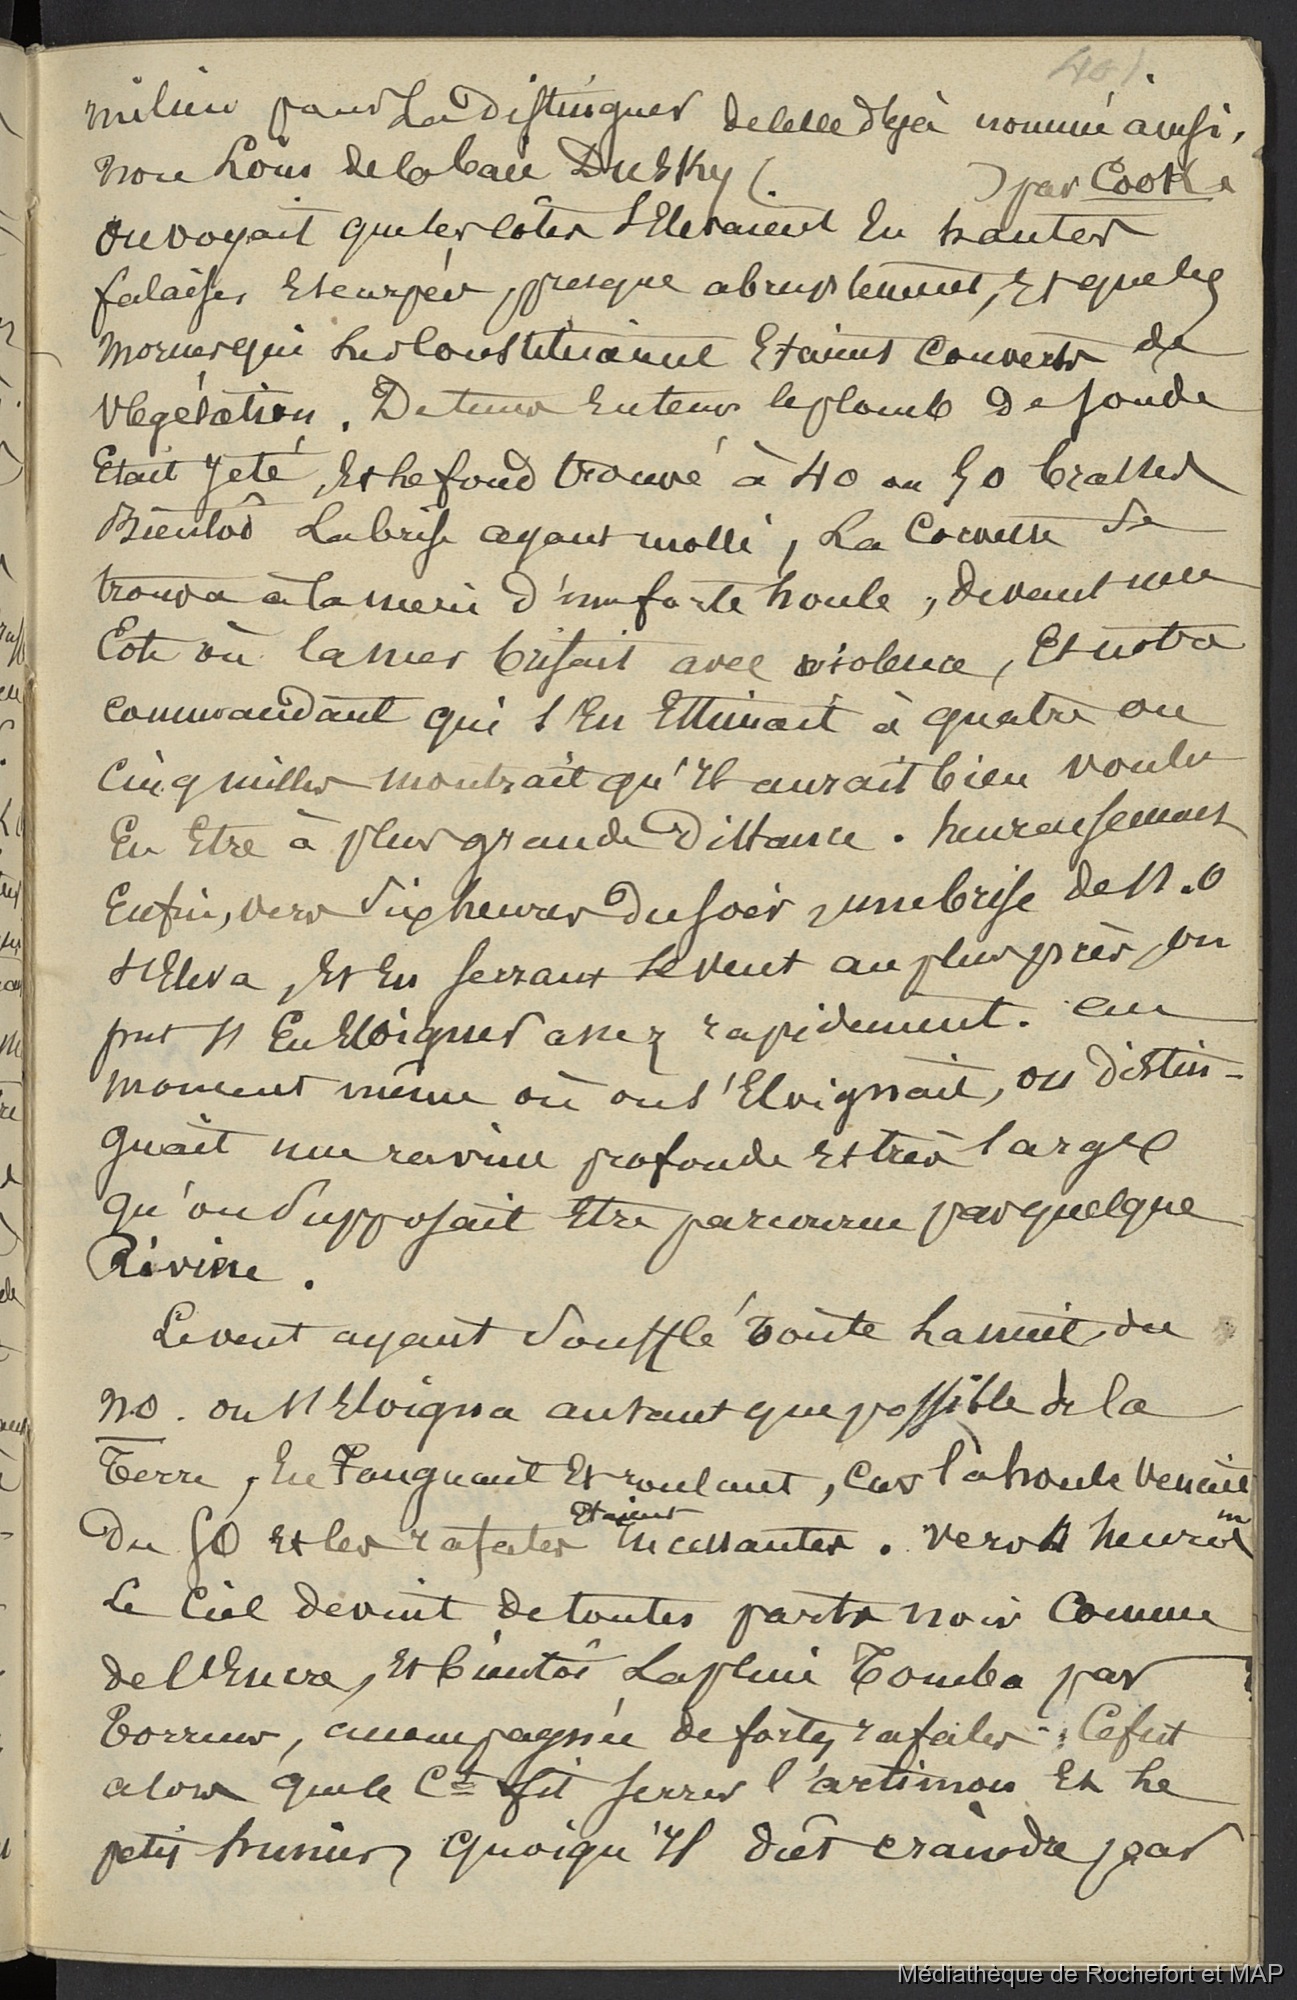 401.
milieu pour La Distinguer de celle déjà nommé ainsi,
non Loin de la baie Dusky ( ) par Cook
on voyait que les côtes s'Elevaient En hautes
falaises Escarpées, presque abruptement, Et que les
mornes qui les Constituaient Etaient Couverts de
Vegétation. De tems En tems le plomb De sonde
Etait Jeté, Et le fond trouvé à 40 ou 50 brasses
Bientôt La brise ayant molli, La Corvette se
trouva à la merci d'une forte houle, devant une
Cote où la mer brisait avec violence, Et notre
commandant qui s'En Estimait à quatre ou
Cinq milles montrait qu'Il aurait bien voulu
En Etre à plus grande Distance. heureusement
Enfin, vers six heures Du soir, une brise de N.O
s'Eleva, Et En serrant le vent au plus près, on
put s'En Eloigner assez rapidement. au
moment même où on s'Eloignait, on distin-
guait une ravine profonde Et très large
qu'on Supposait Etre parcourue par quelque
Rivière.
Le vent ayant Soufflé Toute La nuit du
NO. on s'Eloigna autant que possible de la
Terre, En Tanguant Et roulant, Car la houle venait
Du SO Et les rafales Etaient incessantes. vers 4 heures m
Le Ciel devint de toutes parts noir Comme
de l'Encre, Et bientôt La pluie Tomba par
Torrens, accompagnée de fortes rafales. Ce fut
alors que le Ct fit serrer l'artimon Et Le
petit hunier, quoiqu'Il dût craindre par
Médiathèque de Rochefort et MAP